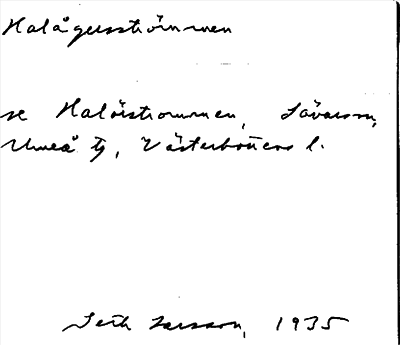 Halågersströmmen
se Halöströmmen, Sävarsn,
Umeå tg, Västerbottens l.
Seth Larsson, 1935